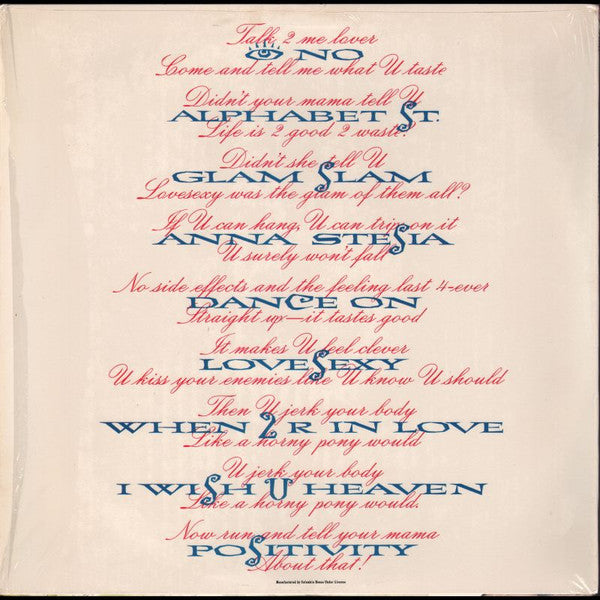 Talk 2 me lover
NO
Come and tell me what U taste
Didn't your mama tell U
ALPHABET ST.
Life is 2 good 2 waste?
Didn't she tell U
GLAM SLAM
Lovesexy was the glam of them all?
If U can hang, U can trip on it
ANNA STESIA
U surely won't fall
No side effects and the feeling last 4-ever
DANCE ON
Straight up—it tastes good
It makes U feel clever
LOVESEXY
U kiss your enemies like U know U should
Then U jerk your body
WHEN 2 R IN LOVE
Like a horny pony would
U jerk your body
I WISH U HEAVEN
Like a horny pony would.
Now run and tell your mama
POSITIVITY
About that!
Manufactured by Columbia House Under License